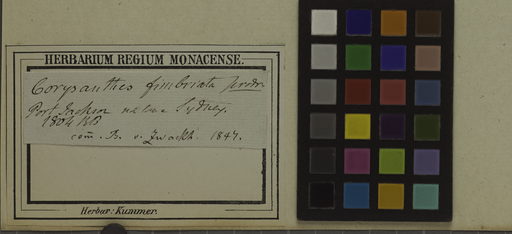 HERBARIUM REGIUM MONACENSE.
Corysanthes fimbriata
Port Jackson Sydney.
1804 RB
com. B. v. Zwackh. 1847.
Herbar: Kummer.